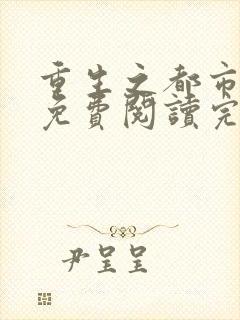 重生之都市
免費閱讀完
尹呈呈